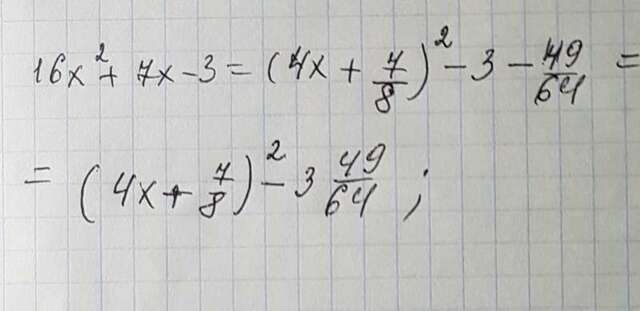 16x² + 7x - 3 = (4x + 7/8)² - 3 - 49/64 =
= (4x + 7/8)² - 3 49/64 ;